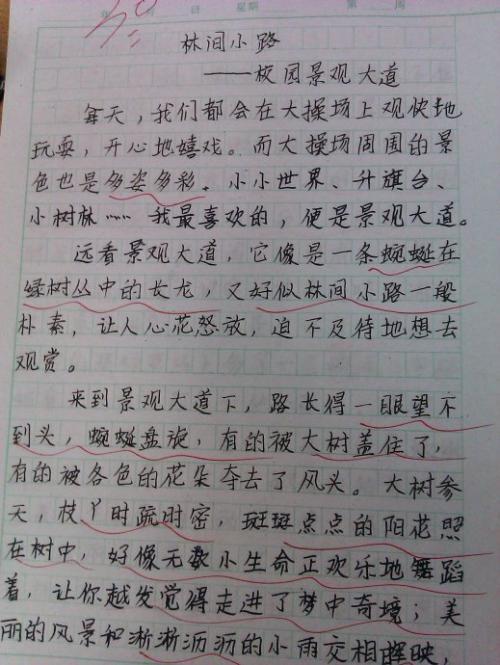 星期
林间小路
——校园景观大道
每天，我们都会在大操场上欢快地
玩耍，开心地嬉戏。而大操场周围的景
色也是多姿多彩。小小世界、升旗台、
小树林……我最喜欢的，便是景观大道。
远看景观大道，它像是一条蜿蜒在
绿树丛中的长龙，又好似林间小路一般
朴素，让人心花怒放，迫不及待地想去
观赏。
来到景观大道下，路长得一眼望不
到头，蜿蜒盘旋，有的被大树盖住了，
有的被各色的花朵夺去了风头。大树参
天，枝丫时疏时密，斑斑点点的阳花照
在树中，好像无数小生命正欢乐地舞蹈
着，让你越发觉得走进了梦中奇境；美
丽的风景和淅淅沥沥的小雨交相晖映，